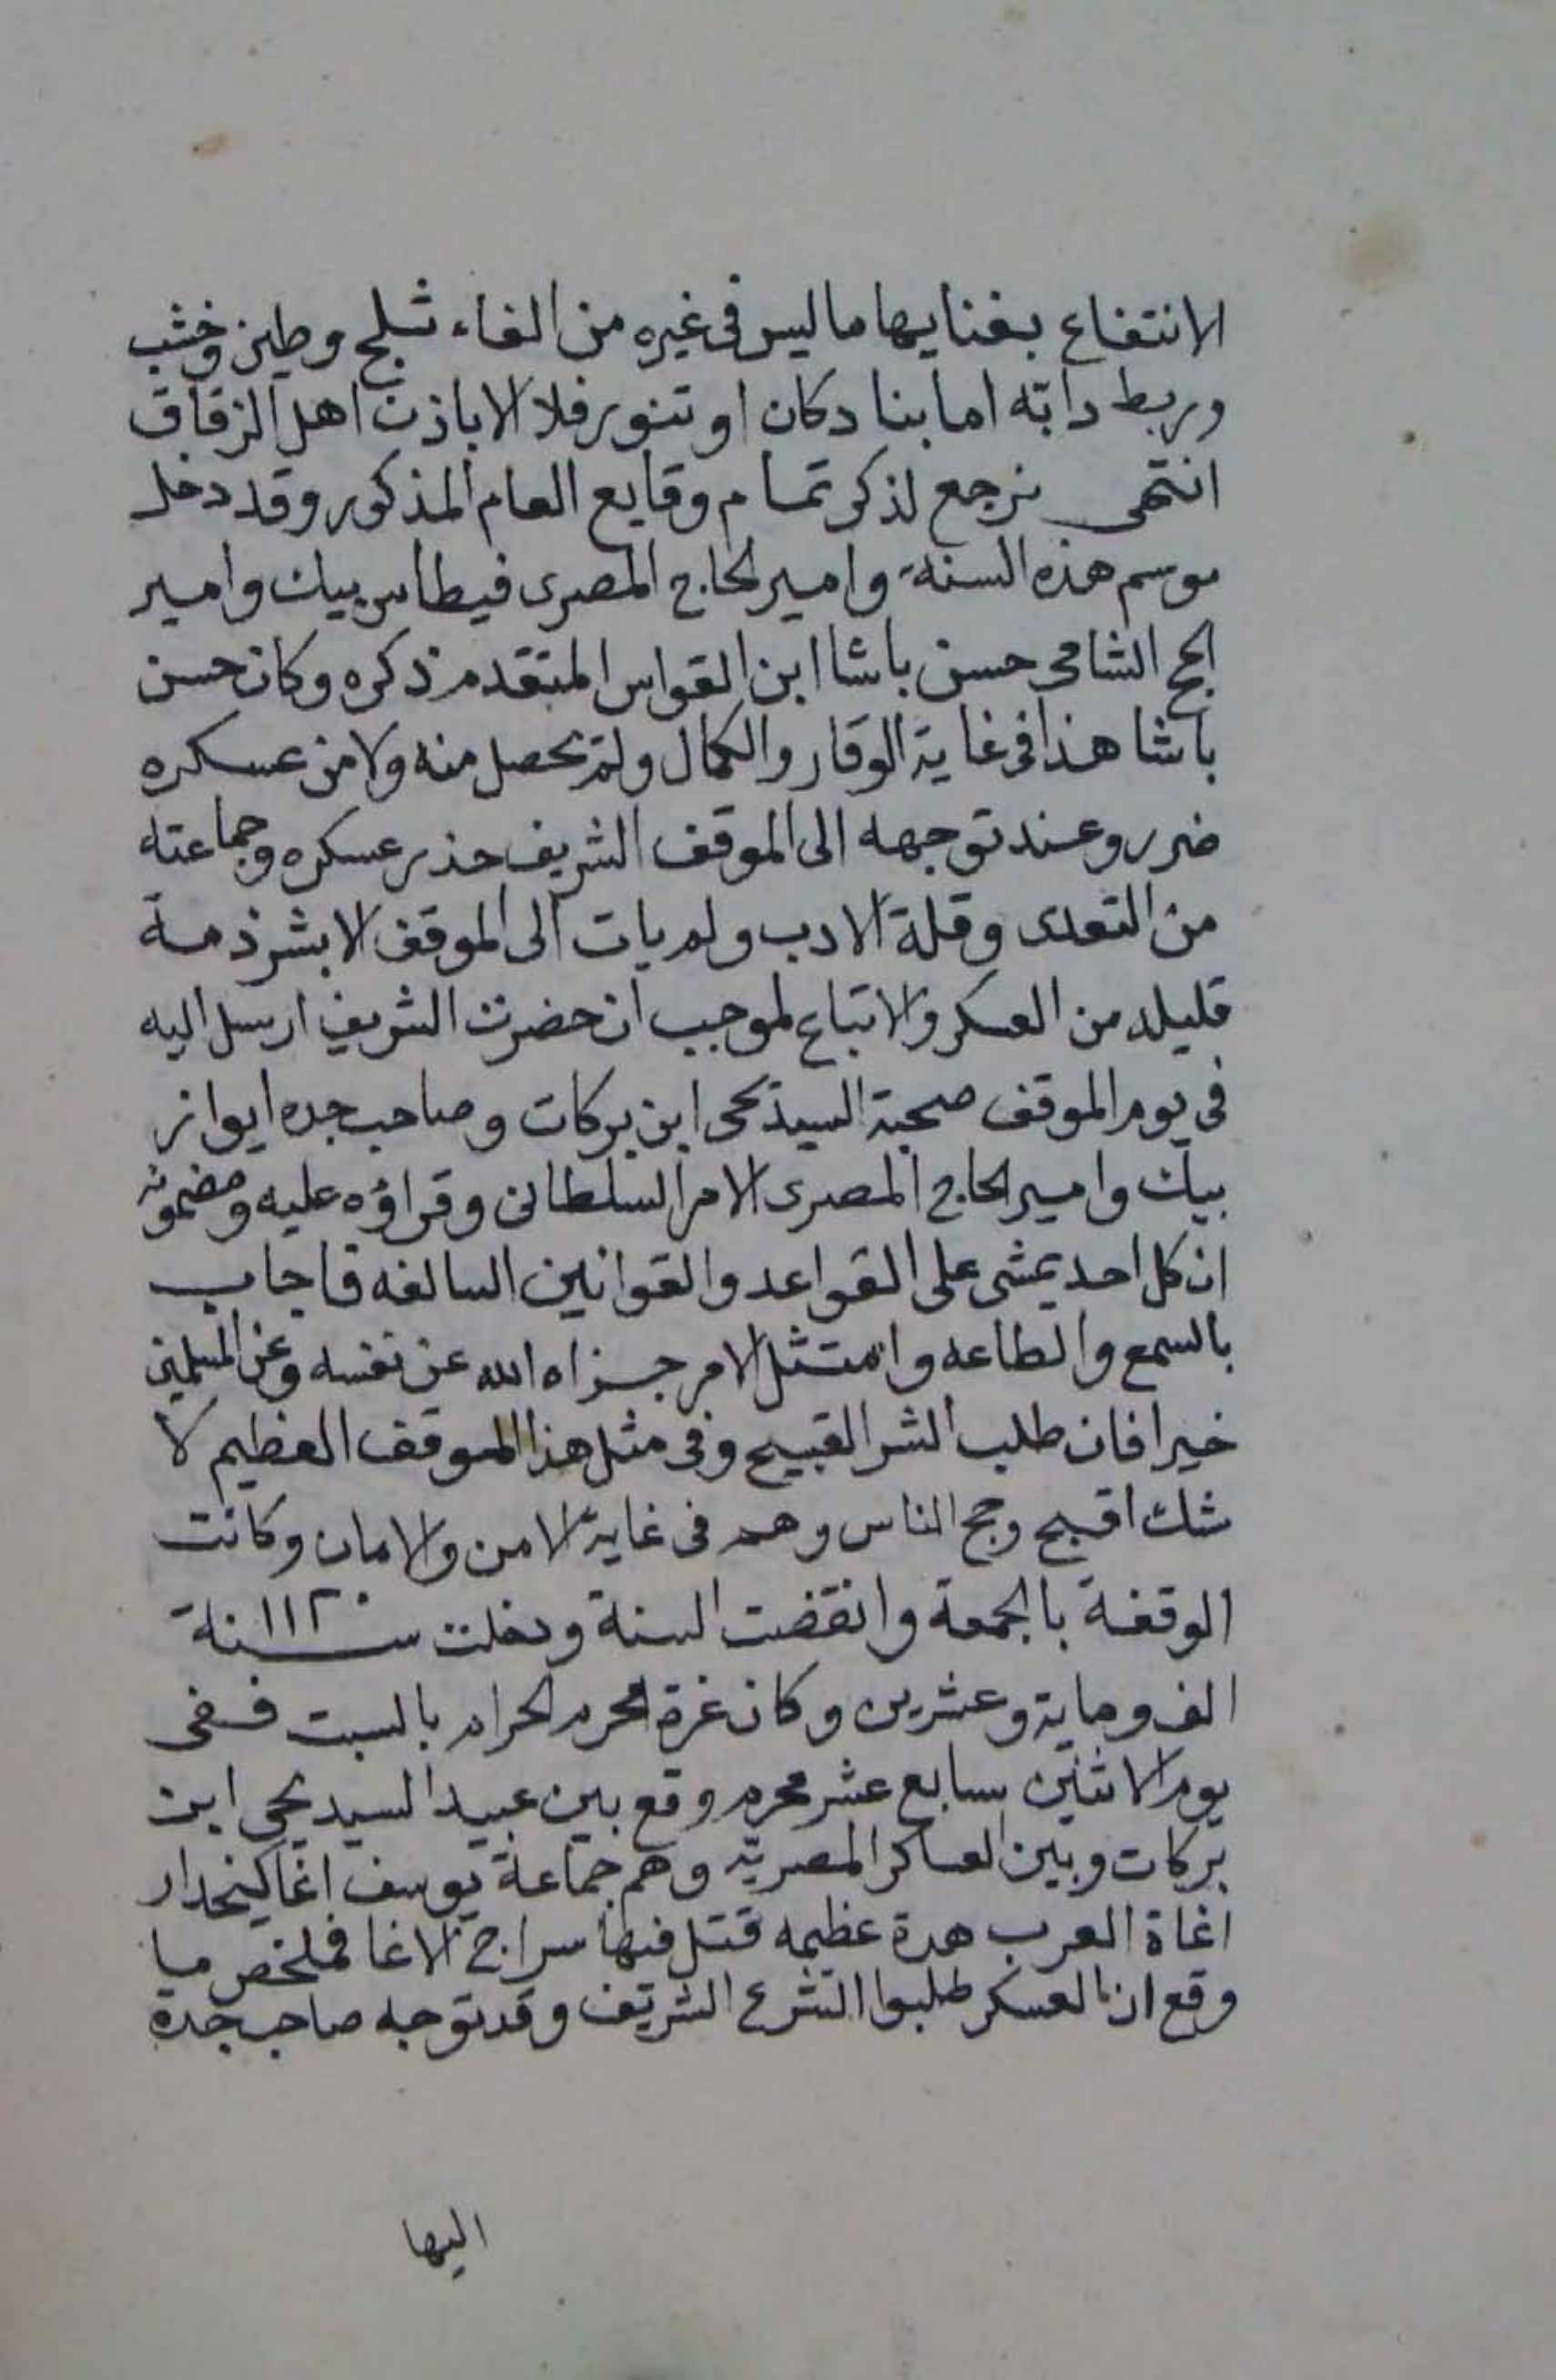 الانتفاع بفنايها ما ليس فى غيره من القاء ثلج وطين وخشب
وربط دابة اما بنا دكان او تنور فلا الا باذن اهل الزقاق
انتهى نرجع لذكر تمام وقايع العام المذكور وقد دخل
موسم هذه السنة وامير الحاج المصرى فيطاس بيك وامير
الحج الشامى حسن باشا ابن القواس المتقدم ذكره وكان حسن
باشا هذا فى غاية الوقار والكمال ولم يحصل منه ولا من عسكره
ضرر وعند توجهه الى الموقف الشريف حذر عسكره وجماعته
من التعدى وقلة الادب ولم يات الى الموقف الا بشرذمة
قليله من العسكر والاتباع لموجب ان حضرت الشريف ارسل اليه
فى يوم الموقف صحبة السيد يحى ابن بركات وصاحب جده ايواز
بيك وامير الحاج المصرى الامر السلطانى وقراؤه عليه ومضمونه
ان كل احد يمشى على القواعد والقوانين السالفه فاجاب
بالسمع والطاعه وامتثل الامر جزاه الله عن نفسه وعن المسلمين
خيرا فان طلب الشر القبيح وفى مثل هذا الموقف العظيم لا
شك اقبح وحج الناس وهم فى غاية الامن والامان وكانت
الوقفة بالجمعة وانقضت السنة ودخلت سنة ١١٢٠
الف وماية وعشرين وكان غرة المحرم الحرام بالسبت ففى
يوم الاثنين سابع عشر محرم وقع بين عبيد السيد يحى ابن
بركات وبين العساكر المصرية وهم جماعة يوسف اغا كيخدار
اغاة العرب هدة عظيمه قتل فيها سراج الاغا فملخص ما
وقع ان العسكر طلبوا الشرع الشريف وقد توجه صاحب جدة
اليها